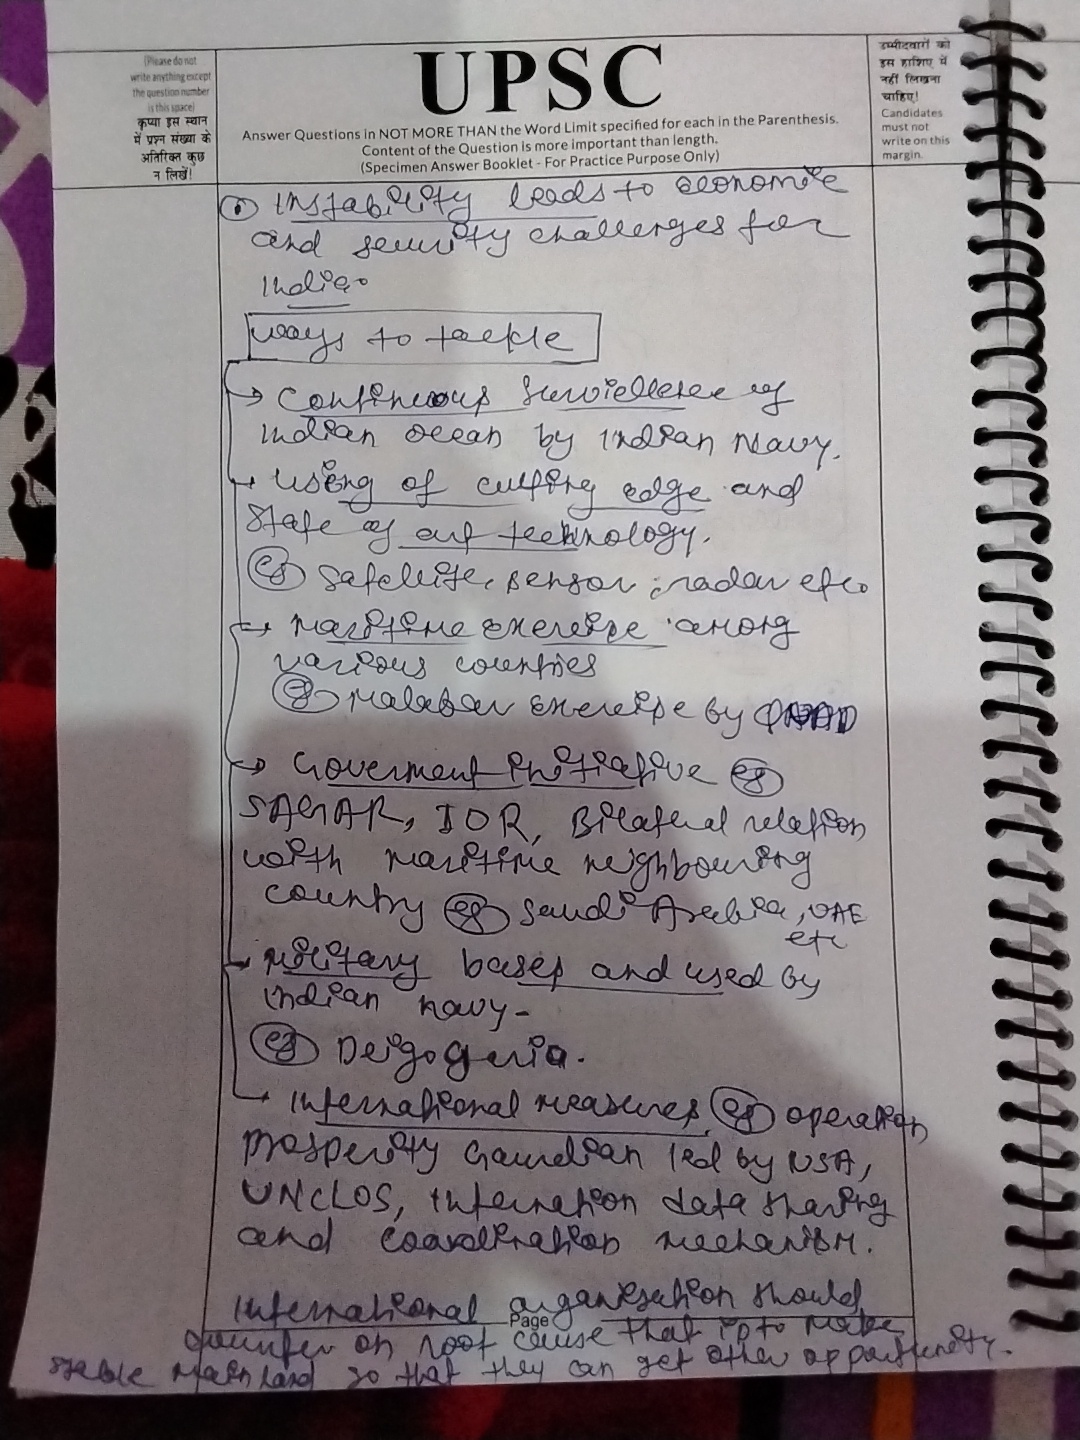 (Please do not
write anything except
the question number
is this space)
कृप्या इस स्थान
में प्रश्न संख्या के
अतिरिक्त कुछ
न लिखें!
UPSC
Answer Questions in NOT MORE THAN the Word Limit specified for each in the Parenthesis.
Content of the Question is more important than length.
(Specimen Answer Booklet - For Practice Purpose Only)
उम्मीदवारों को
इस हाशिए में
नहीं लिखना
चाहिए!
Candidates
must not
write on this
margin.
Instability leads to economic
and security challenges for
India.
ways to tackle
→ Continuous Surviellence of
Indian ocean by Indian Navy.
→ Using of cutting edge and
State of art technology.
eg Satellite, sensor, radar etc.
→ Maritime exercise among
various counties
eg Malabar exercise by QUAD
→ Goverment initiative eg
SAGAR, IOR, Bilateral relation
with maritime neighbouring
country eg Saudi Arabia, UAE
etc
→ Military bases and used by
Indian navy-
eg Deigogeria.
→ International measures, eg operation
Prosperity Gaurdian led by USA,
UNCLOS, Internation data sharing
and coordination mechanism.
International organisation should
Page
counter on root cause that is to make
stable mainland so that they can get other opportunity.